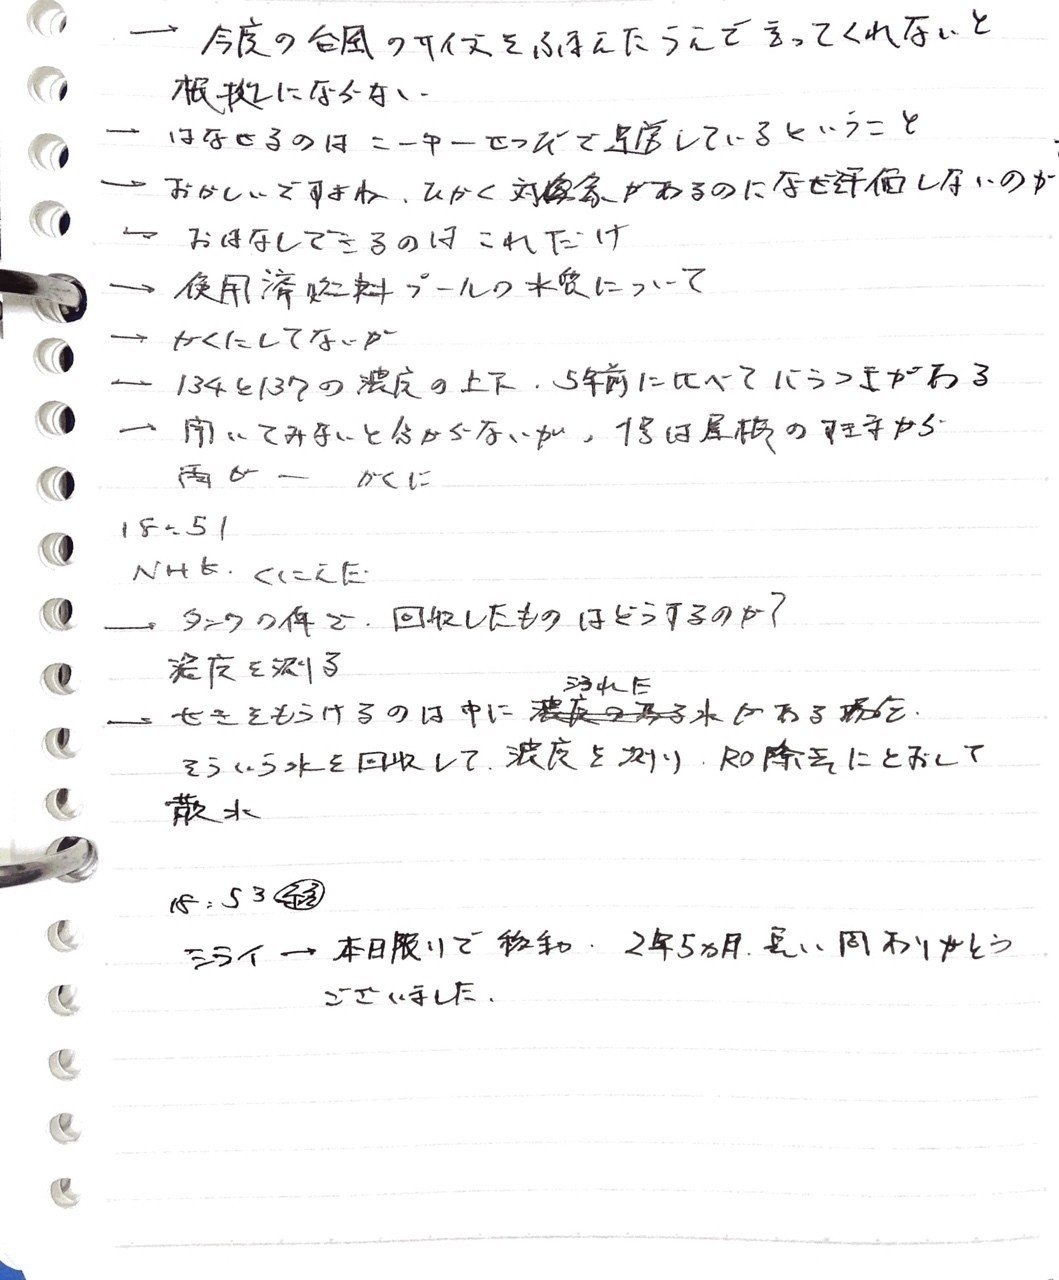 → 今度の台風のサイズをふまえたうえで言ってくれないと
根拠にならない.
→ はなせるのは ニーヤーせつびで運営しているということ
→ おかしいですよね. ひかく対象があるのになぜ評価しないのか
→ おはなしできるのはこれだけ
→ 使用済燃料プールの水質について
→ かくにしてないが
→ 134と137の濃度の上下. 5年前に比べてバラつきがある
→ 聞いてみないと分からないが, 1号は屋根のすき子から
雨が ー かくに
18:51
NHK. くにえだ
→ タンクの件で. 回収したものはどうするのか?
濃度を測る
→ せきをもうけるのは中に 汚れた水がある場合.
そういう水を回収して. 濃度を測り. RO除去にとおして
散水
18:53 終
シライ → 本日限りで移動. 2年5カ月. 長い間ありがとう
ございました.